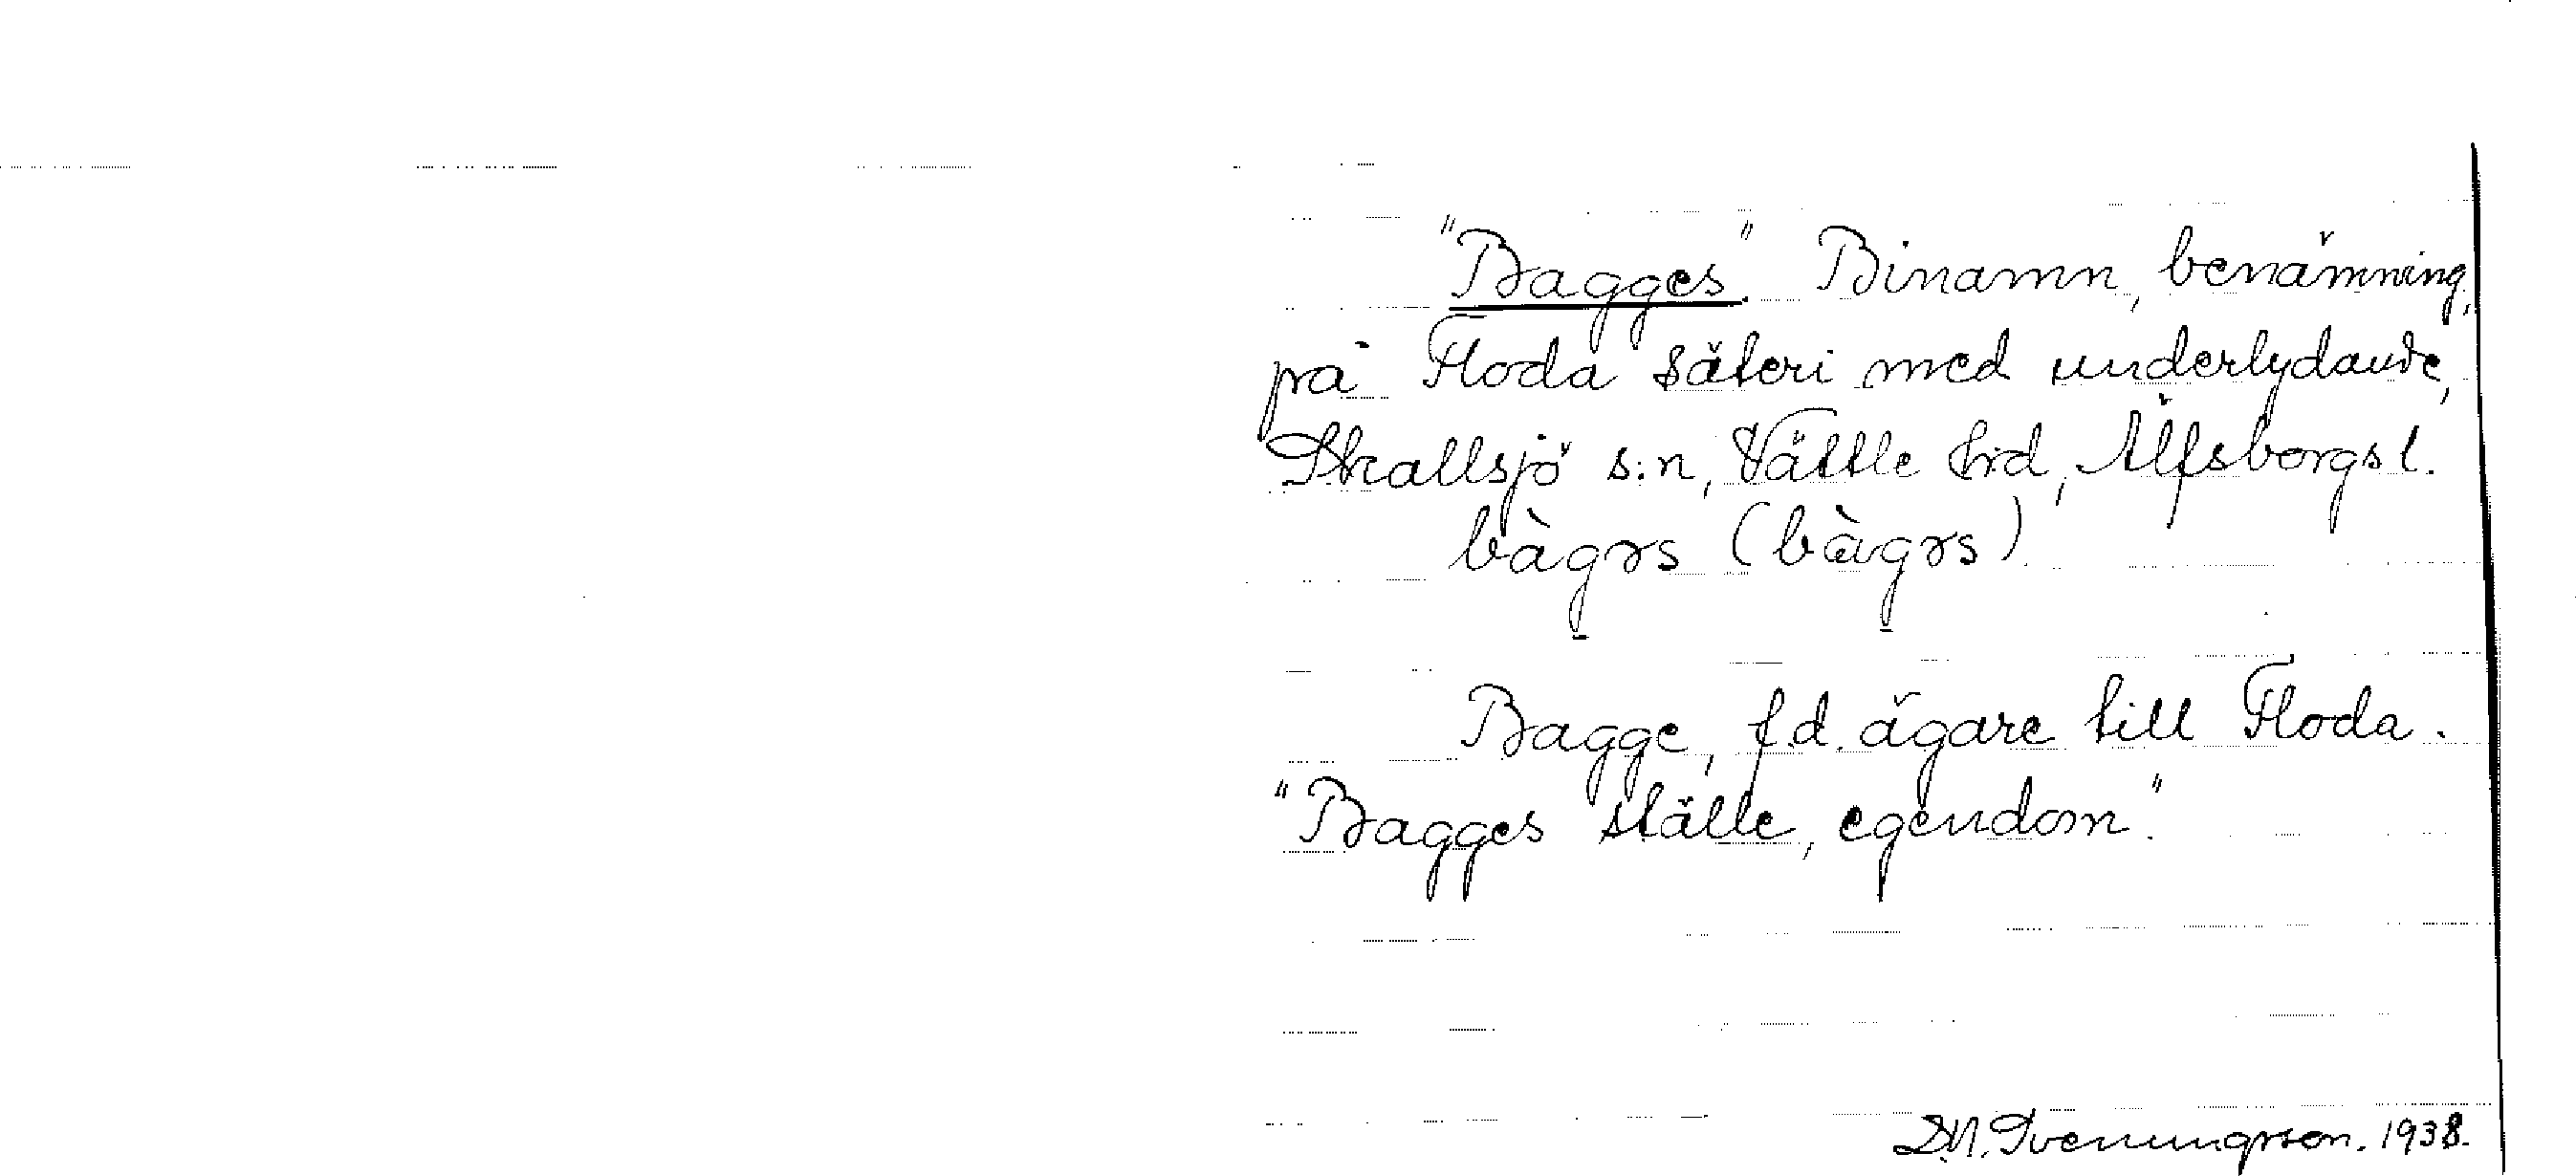 "Bagges". Binamn, benämning,
på Floda säteri med underlydande,
Skallsjö s:n, Vättle hrd, Älfsborgs l.
bàgɤs (bàgɤs).
Bagge, f.d. ägare till Floda.
"Bagges ställe, egendom."
D.N. Svenningsson. 1938.